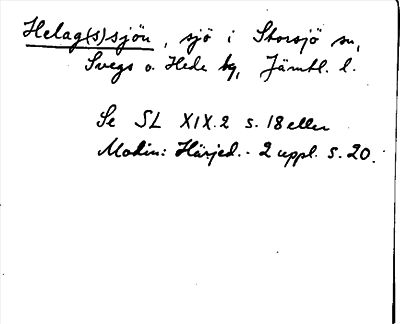 Helag(s)sjön, sjö i Storsjö sn,
Svegs o. Hede tg, Jämtl. l.
Se SL XIX.2 s. 18 eller
Modin: Härjed. - 2 uppl. s. 20.